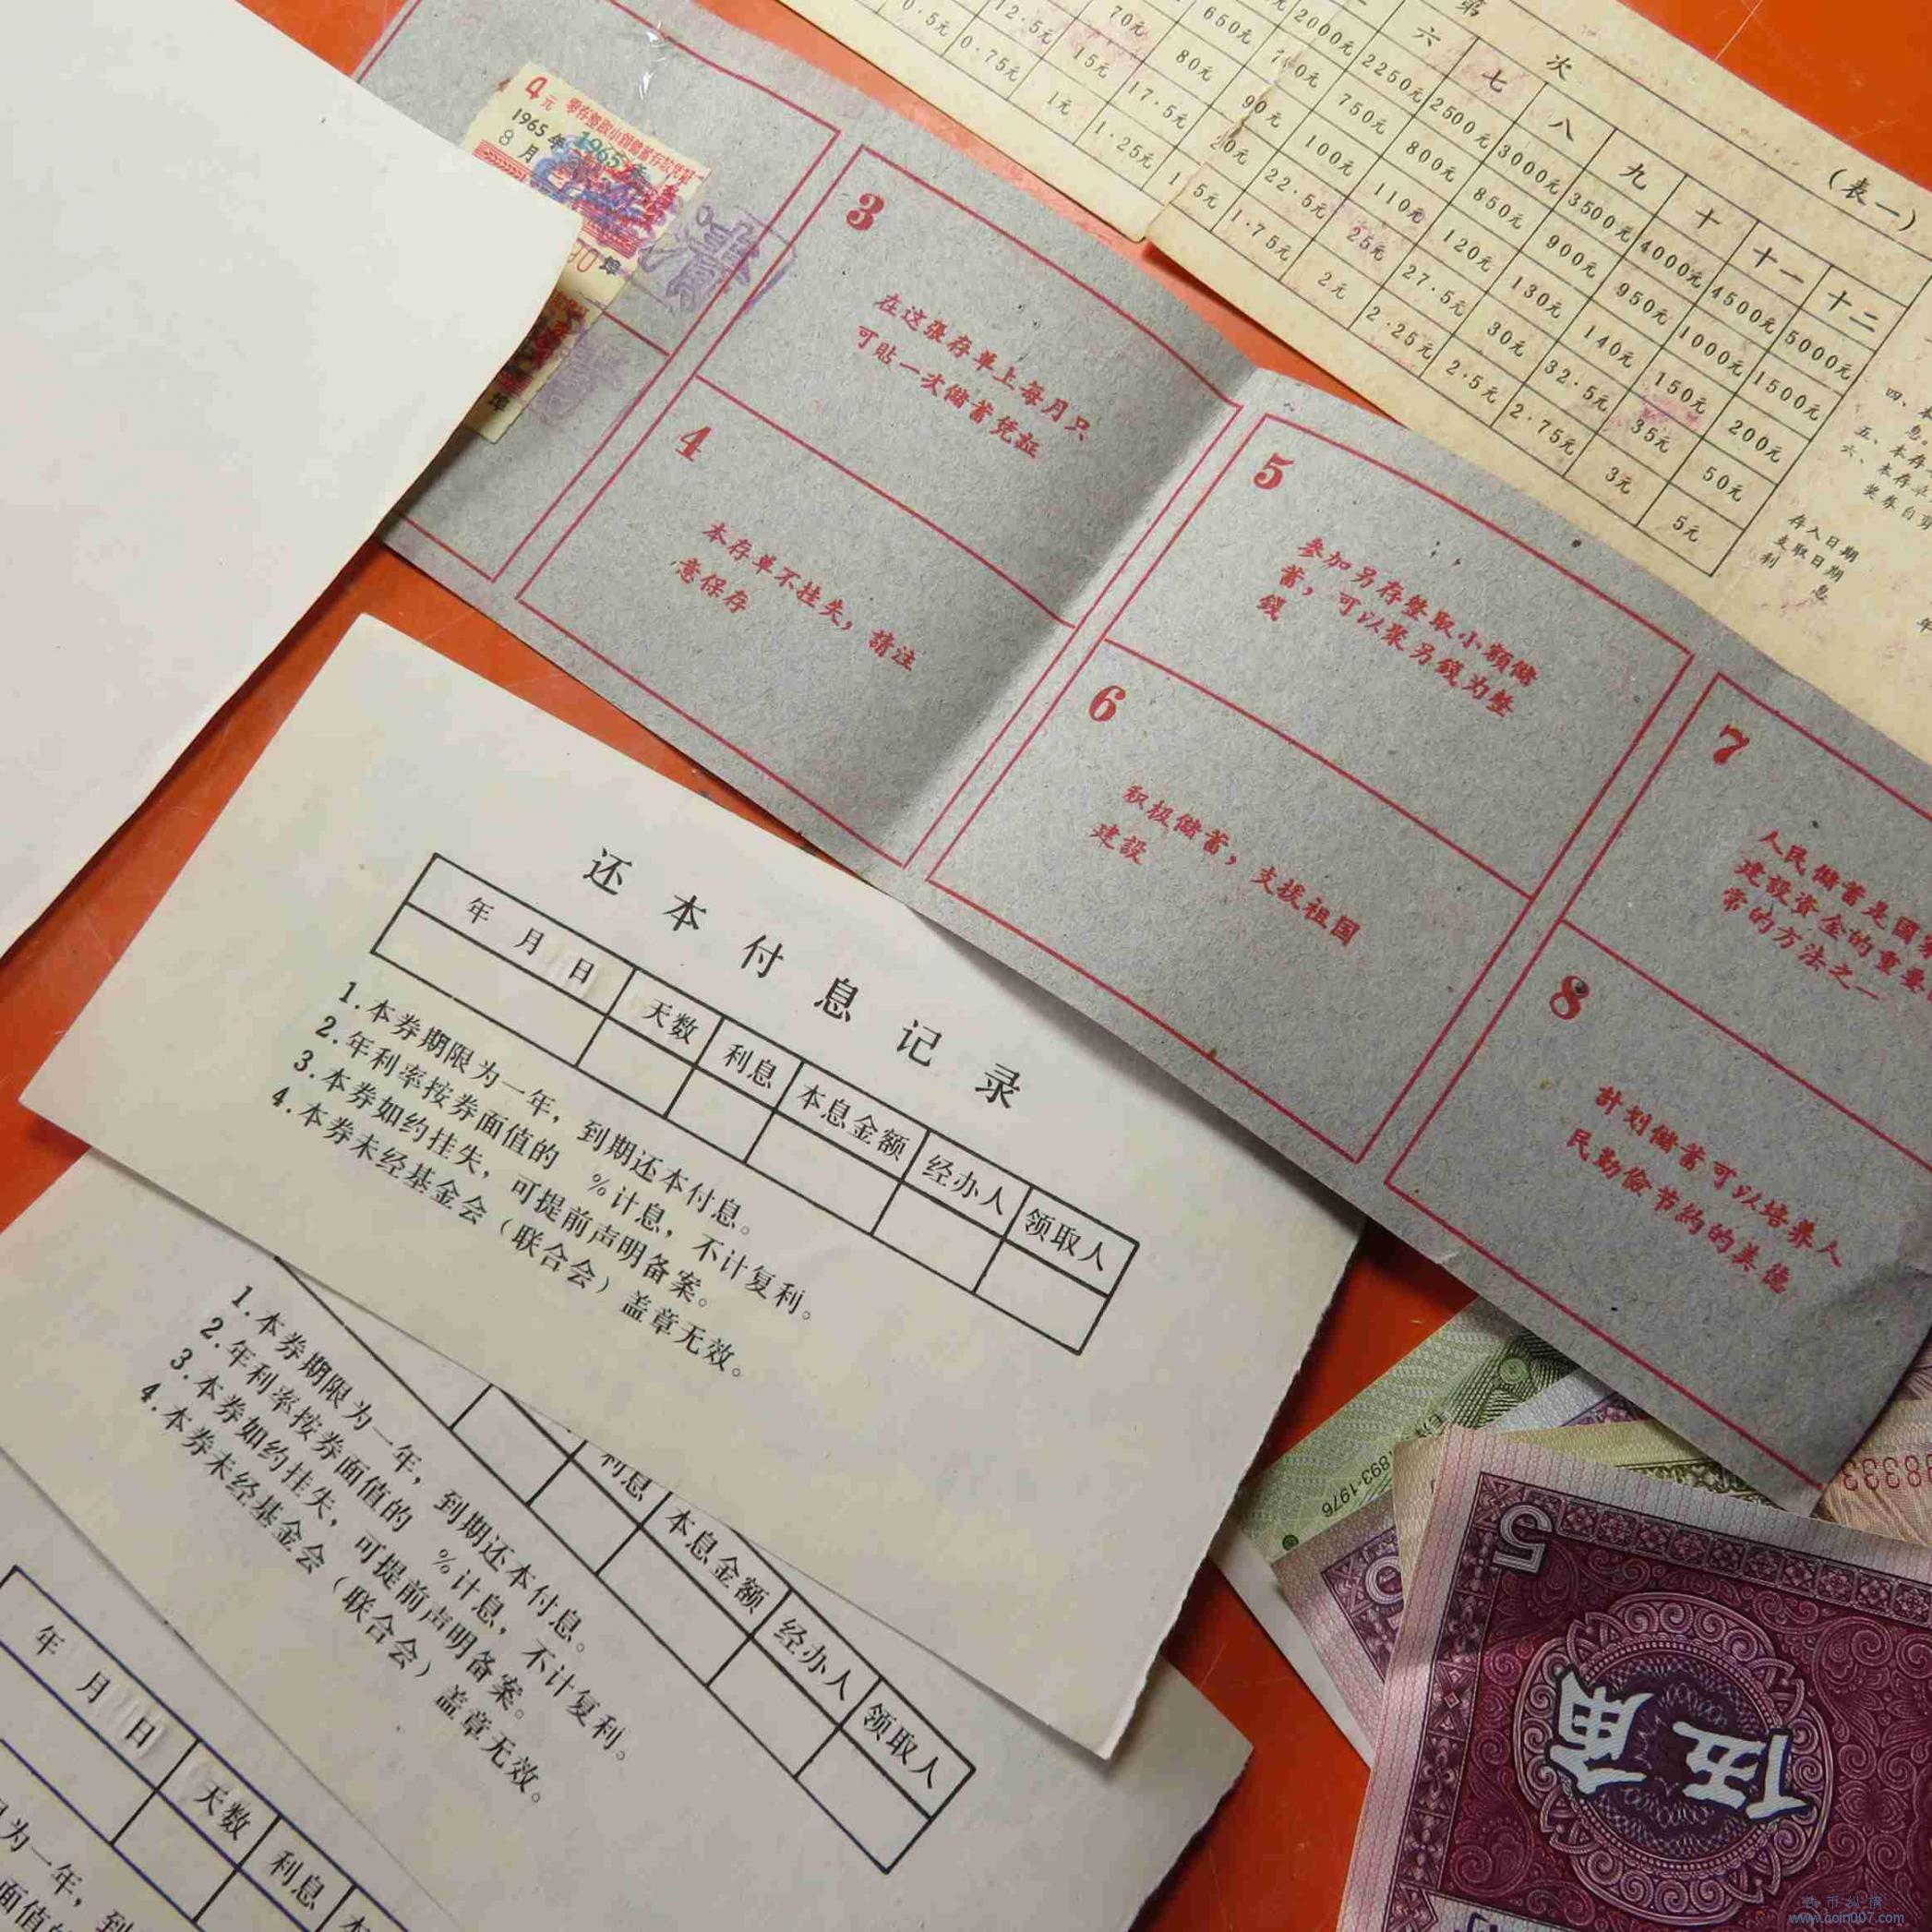 第 次
(表一)
六 七 八 九 十 十一 十二
2000元 2250元 2500元 3000元 3500元 4000元 4500元 5000元
650元 700元 750元 800元 850元 900元 950元 1000元 1500元
70元 80元 90元 100元 110元 120元 130元 140元 150元 200元
12.5元 15元 17.5元 20元 22.5元 25元 27.5元 30元 32.5元 35元 50元
0.5元 0.75元 1元 1.25元 1.5元 1.75元 2元 2.25元 2.5元 2.75元 3元 5元
四、本
息。
五、本存
六、本存单
奖券自剪
存入日期
支取日期
利 息
年
4元
零存整取小額儲蓄存款凭証
1965年
8月
1965
埠
埠
3
在这張存单上每月只
可貼一次儲蓄凭証
4
本存单不挂失，請注
意保存
5
参加另存整取小額儲
蓄，可以聚另錢为整
錢
6
积极儲蓄，支援祖国
建設
7
人民儲蓄是國家
建設資金的重要
常的方法之一
8
計划儲蓄可以培养人
民勤儉节約的美德
还本付息记录
年 月 日 天数 利息 本息金额 经办人 领取人
1.本券期限为一年，到期还本付息。
2.年利率按券面值的 %计息，不计复利。
3.本券如约挂失，可提前声明备案。
4.本券未经基金会（联合会）盖章无效。
利息 本息金额 经办人 领取人
1.本券期限为一年，到期还本付息。
2.年利率按券面值的 %计息，不计复利。
3.本券如约挂失，可提前声明备案。
4.本券未经基金会（联合会）盖章无效。
年 月 日 天数 利息 本
为一年，到
面值的
1893-1976
38333
5
伍角
www.coin007.com